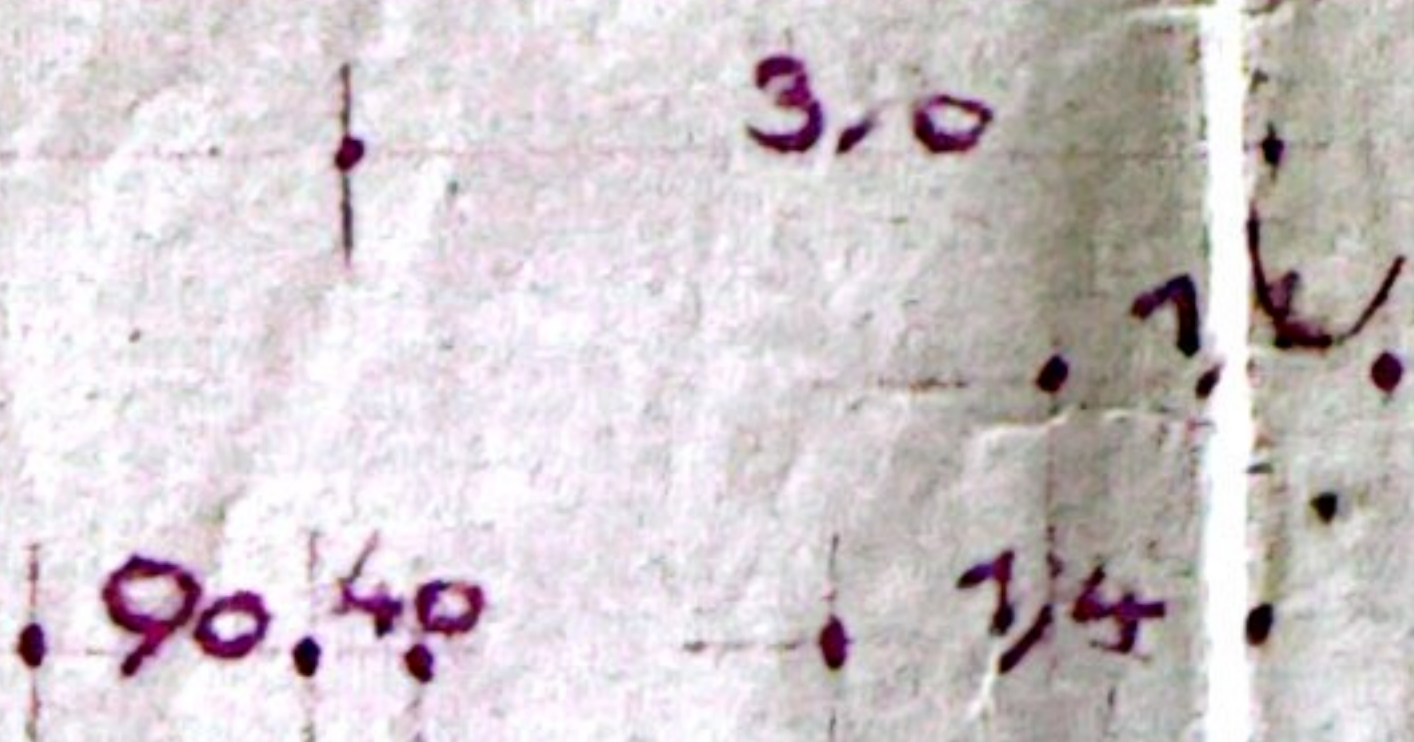 3,0
90 40 1,4